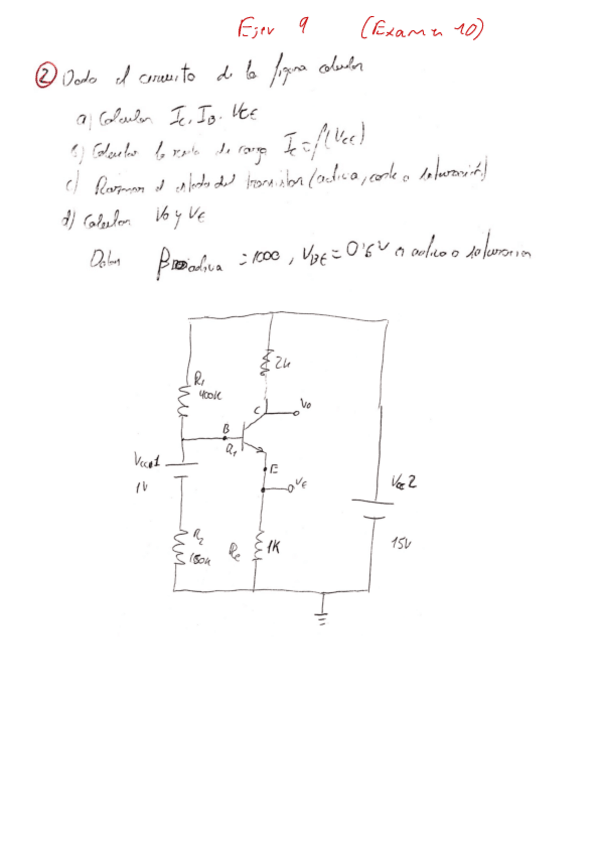 Ejer 9 (Examen 10)
② Dado el circuito de la figura calcular
a) Calcular Ic, IB, VCE
b) Calcular la recta de carga Ic = f(VCE)
c) Razonar el estado del transistor (activa, corte o saturación)
d) Calcular Vo y VE
Datos β activa = 1000, VBE = 0'6V en activa o saturacion
R1
400K
2K
C
Vo
B
Q1
Vcc1
E
1V
VE
Vcc2
R2
Re
1K
15V